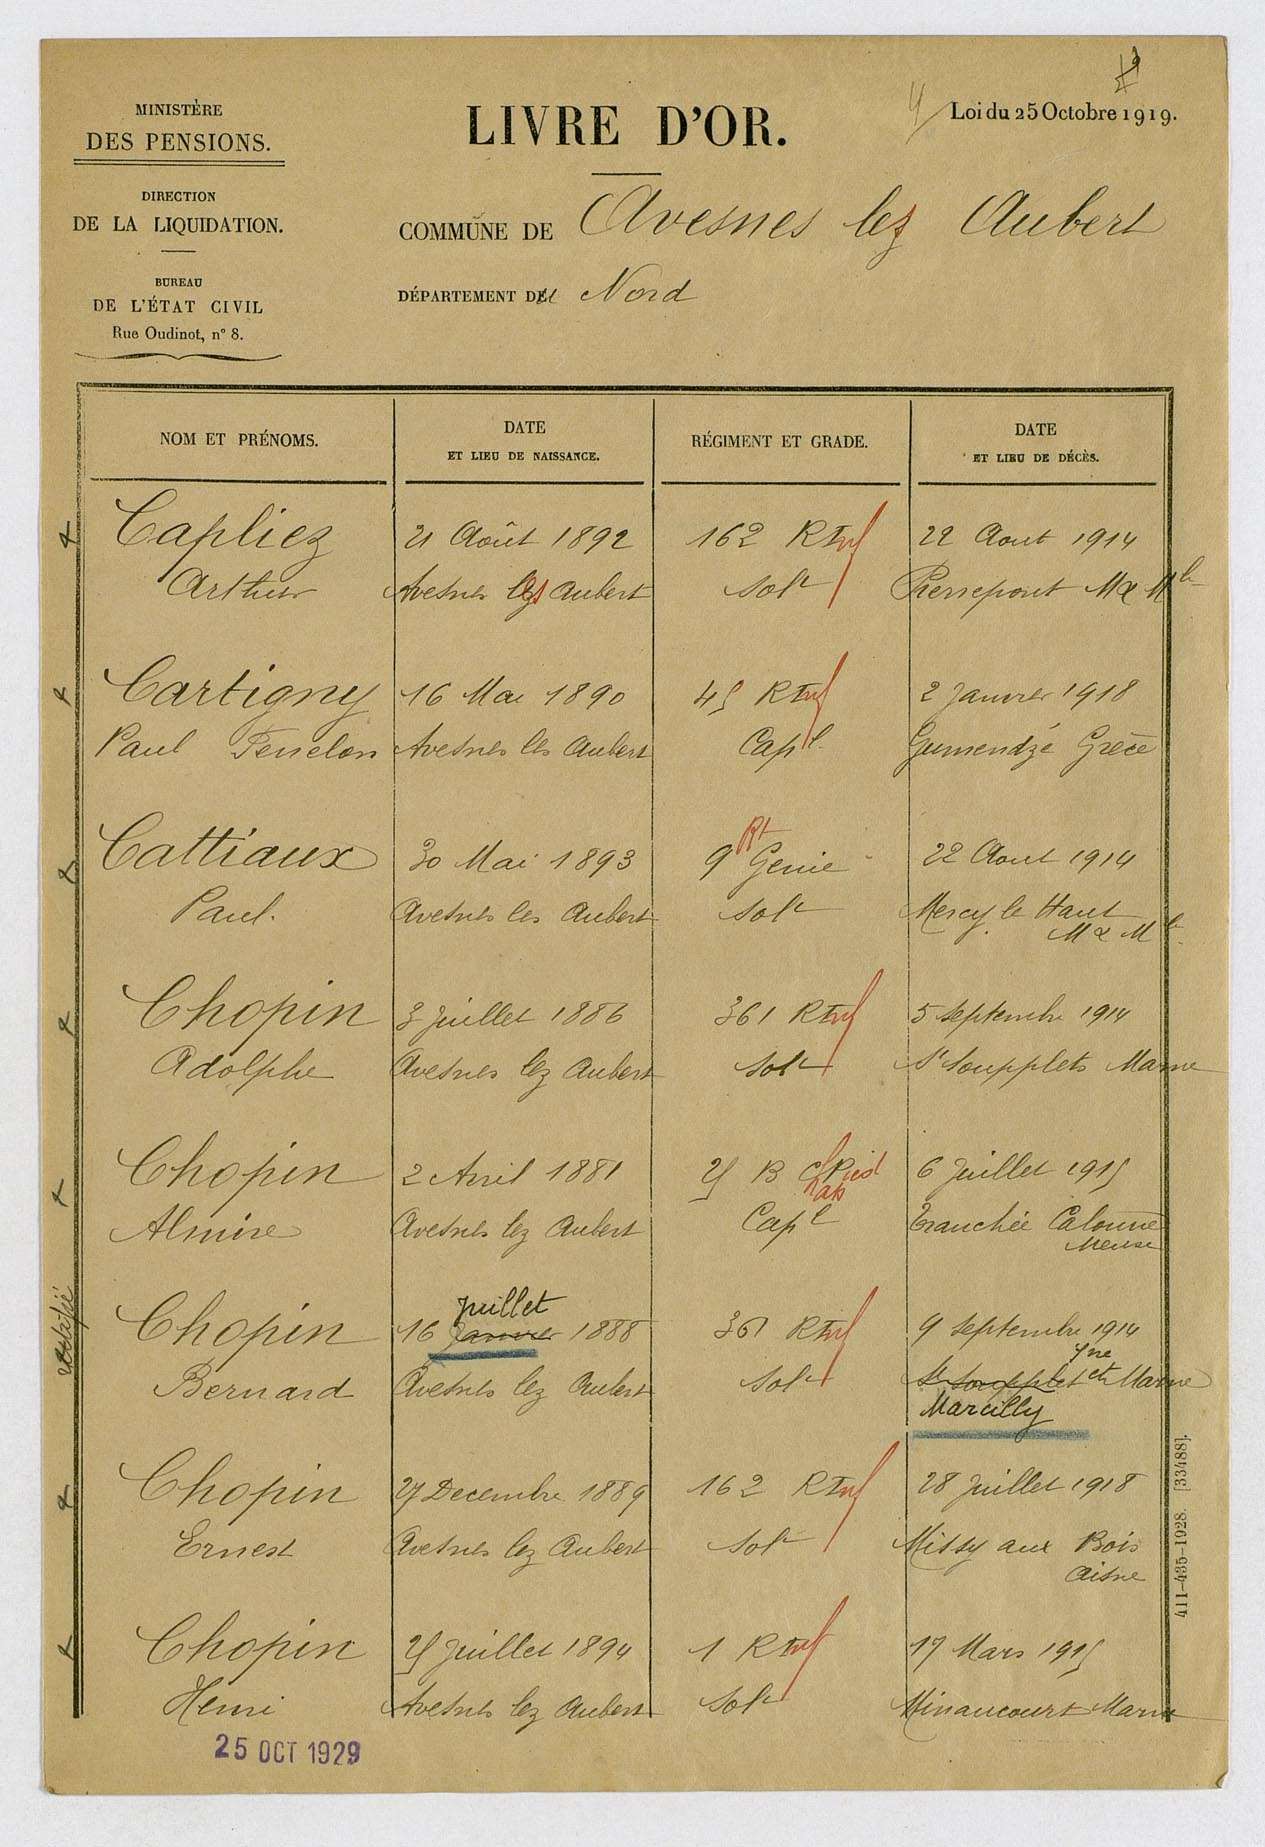 MINISTÈRE
DES PENSIONS.
DIRECTION
DE LA LIQUIDATION.
BUREAU
DE L'ÉTAT CIVIL
Rue Oudinot, n° 8.
LIVRE D'OR.
Loi du 25 Octobre 1919.
COMMUNE DE Avesnes lez Aubert
DÉPARTEMENT DU Nord
NOM ET PRÉNOMS.
DATE
ET LIEU DE NAISSANCE.
RÉGIMENT ET GRADE.
DATE
ET LIEU DE DÉCÈS.
Capliez 21 Août 1892 162 RInf 22 Aout 1914
Arthur Avesnes les Aubert Solt Pierrepont M & Mlle
Cartigny 16 Mai 1890 45 RInf 2 Janvier 1918
Paul Fenelon Avesnes les Aubert Capl Gumendzé Grèce
Cattiaux 30 Mai 1893 9 Rt Genie 22 Aout 1914
Paul. Avesnes les Aubert Solt Mercy le Haut
M & Mlle
Chopin 3 Juillet 1886 361 RInf 5 Septembre 1914
Adolphe Avesnes lez Aubert Solt St Soupplets Marne
Chopin 2 Avril 1881 25 B Chas Pied 6 Juillet 1915
Almire Avesnes lez Aubert Capl Tranchée Calonne
Meuse
rectifié
Juillet
Chopin 16 Janvier 1888 361 RInf 9 Septembre 1914
Bernard Avesnes lez Aubert Solt St Soupplet Sne et Marne
Marcilly
Chopin 27 Decembre 1889 162 RInf 28 Juillet 1918
Ernest Avesnes lez Aubert Solt Missy aux Bois
Aisne
Chopin 25 Juillet 1894 1 RInf 17 Mars 1915
Henri Avesnes lez Aubert Solt Minaucourt Marne
25 OCT 1929
411-435-1928. [33488].